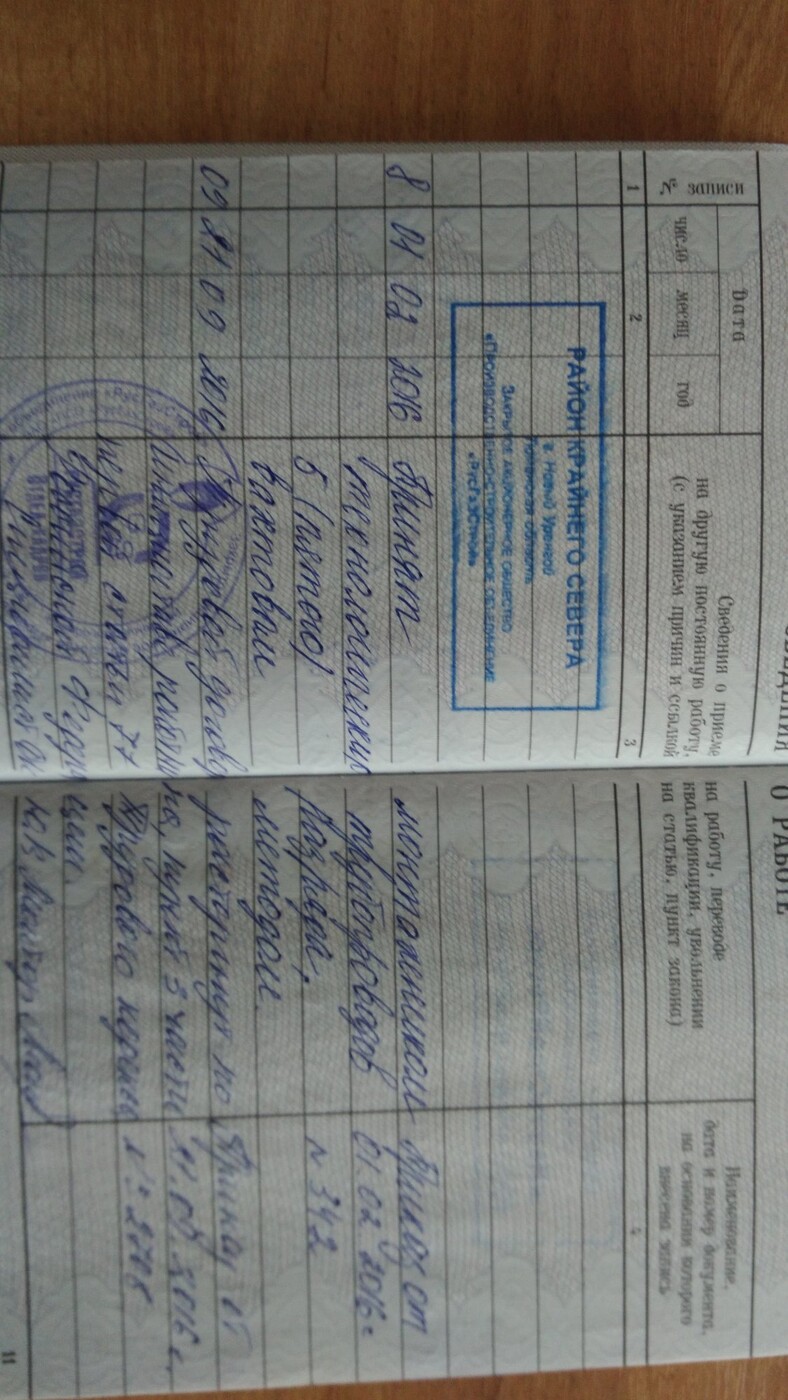 СВЕДЕНИЯ О РАБОТЕ
№ записи
Дата
число месяц год
Сведения о приеме на работу, переводе
на другую постоянную работу, квалификации, увольнении
(с указанием причин и ссылкой на статью, пункт закона)
Наименование,
дата и номер документа,
на основании которого
внесена запись
1 2 3 4
РАЙОН КРАЙНЕГО СЕВЕРА
г. Новый Уренгой
Тюменская область
ЗАКРЫТОЕ АКЦИОНЕРНОЕ ОБЩЕСТВО
«ПРОИЗВОДСТВЕННО-СТРОИТЕЛЬНОЕ ОБЪЕДИНЕНИЕ
«РусГазСтрой»
8 01 02 2016 Принят монтажником Приказ от
технологических трубопроводов 01.02.2016г
5 (пятого) разряда, N 342
вахтовым методом.
09 09 2016 Трудовой договор расторгнут по Приказ от
инициативе 3 части 2016 г.
статьи 77 Трудового кодекса N: 2708
Российской Федера
ции.
11